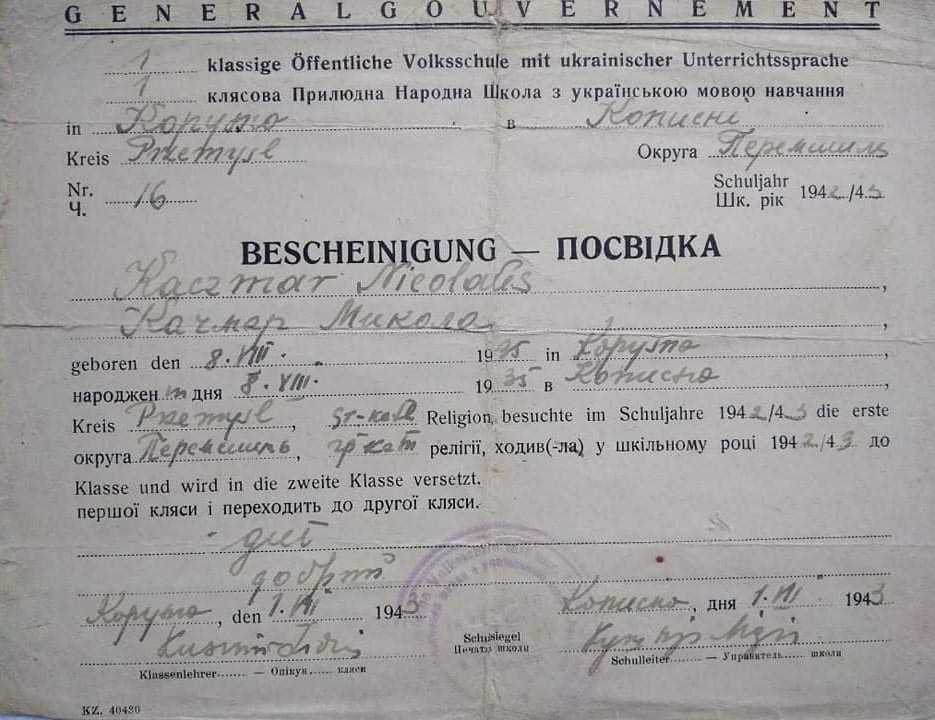 GENERALGOUVERNEMENT
1 klassige Öffentliche Volksschule mit ukrainischer Unterrichtssprache
1 клясова Прилюдна Народна Школа з українською мовою навчання
in Kopysno в Кописні
Kreis Przemysl Округа Перемишль
Nr. Ч. 16 Schuljahr Шк. рік 1942/43
BESCHEINIGUNG — ПОСВІДКА
Kaczmar Nicolaus,
Качмар Микола,
geboren den 8. VIII. 1935 in Kopysno,
народжен дня 8. VIII. 1935 в Кописно,
Kreis Przemysl, gr-kath Religion, besuchte im Schuljahre 1942/43 die erste
округа Перемишль, гр кат релігії, ходив(-ла) у шкільному році 1942/43 до
Klasse und wird in die zweite Klasse versetzt.
першої кляси і переходить до другої кляси.
gut
добрий
Kopysno, den 1. VII 1943 Кописно, дня 1. VII. 1943
Schulsiegel
Печать школи
Klassenlehrer — Опікун кляси Schulleiter — Управитель школи
KZ. 40480